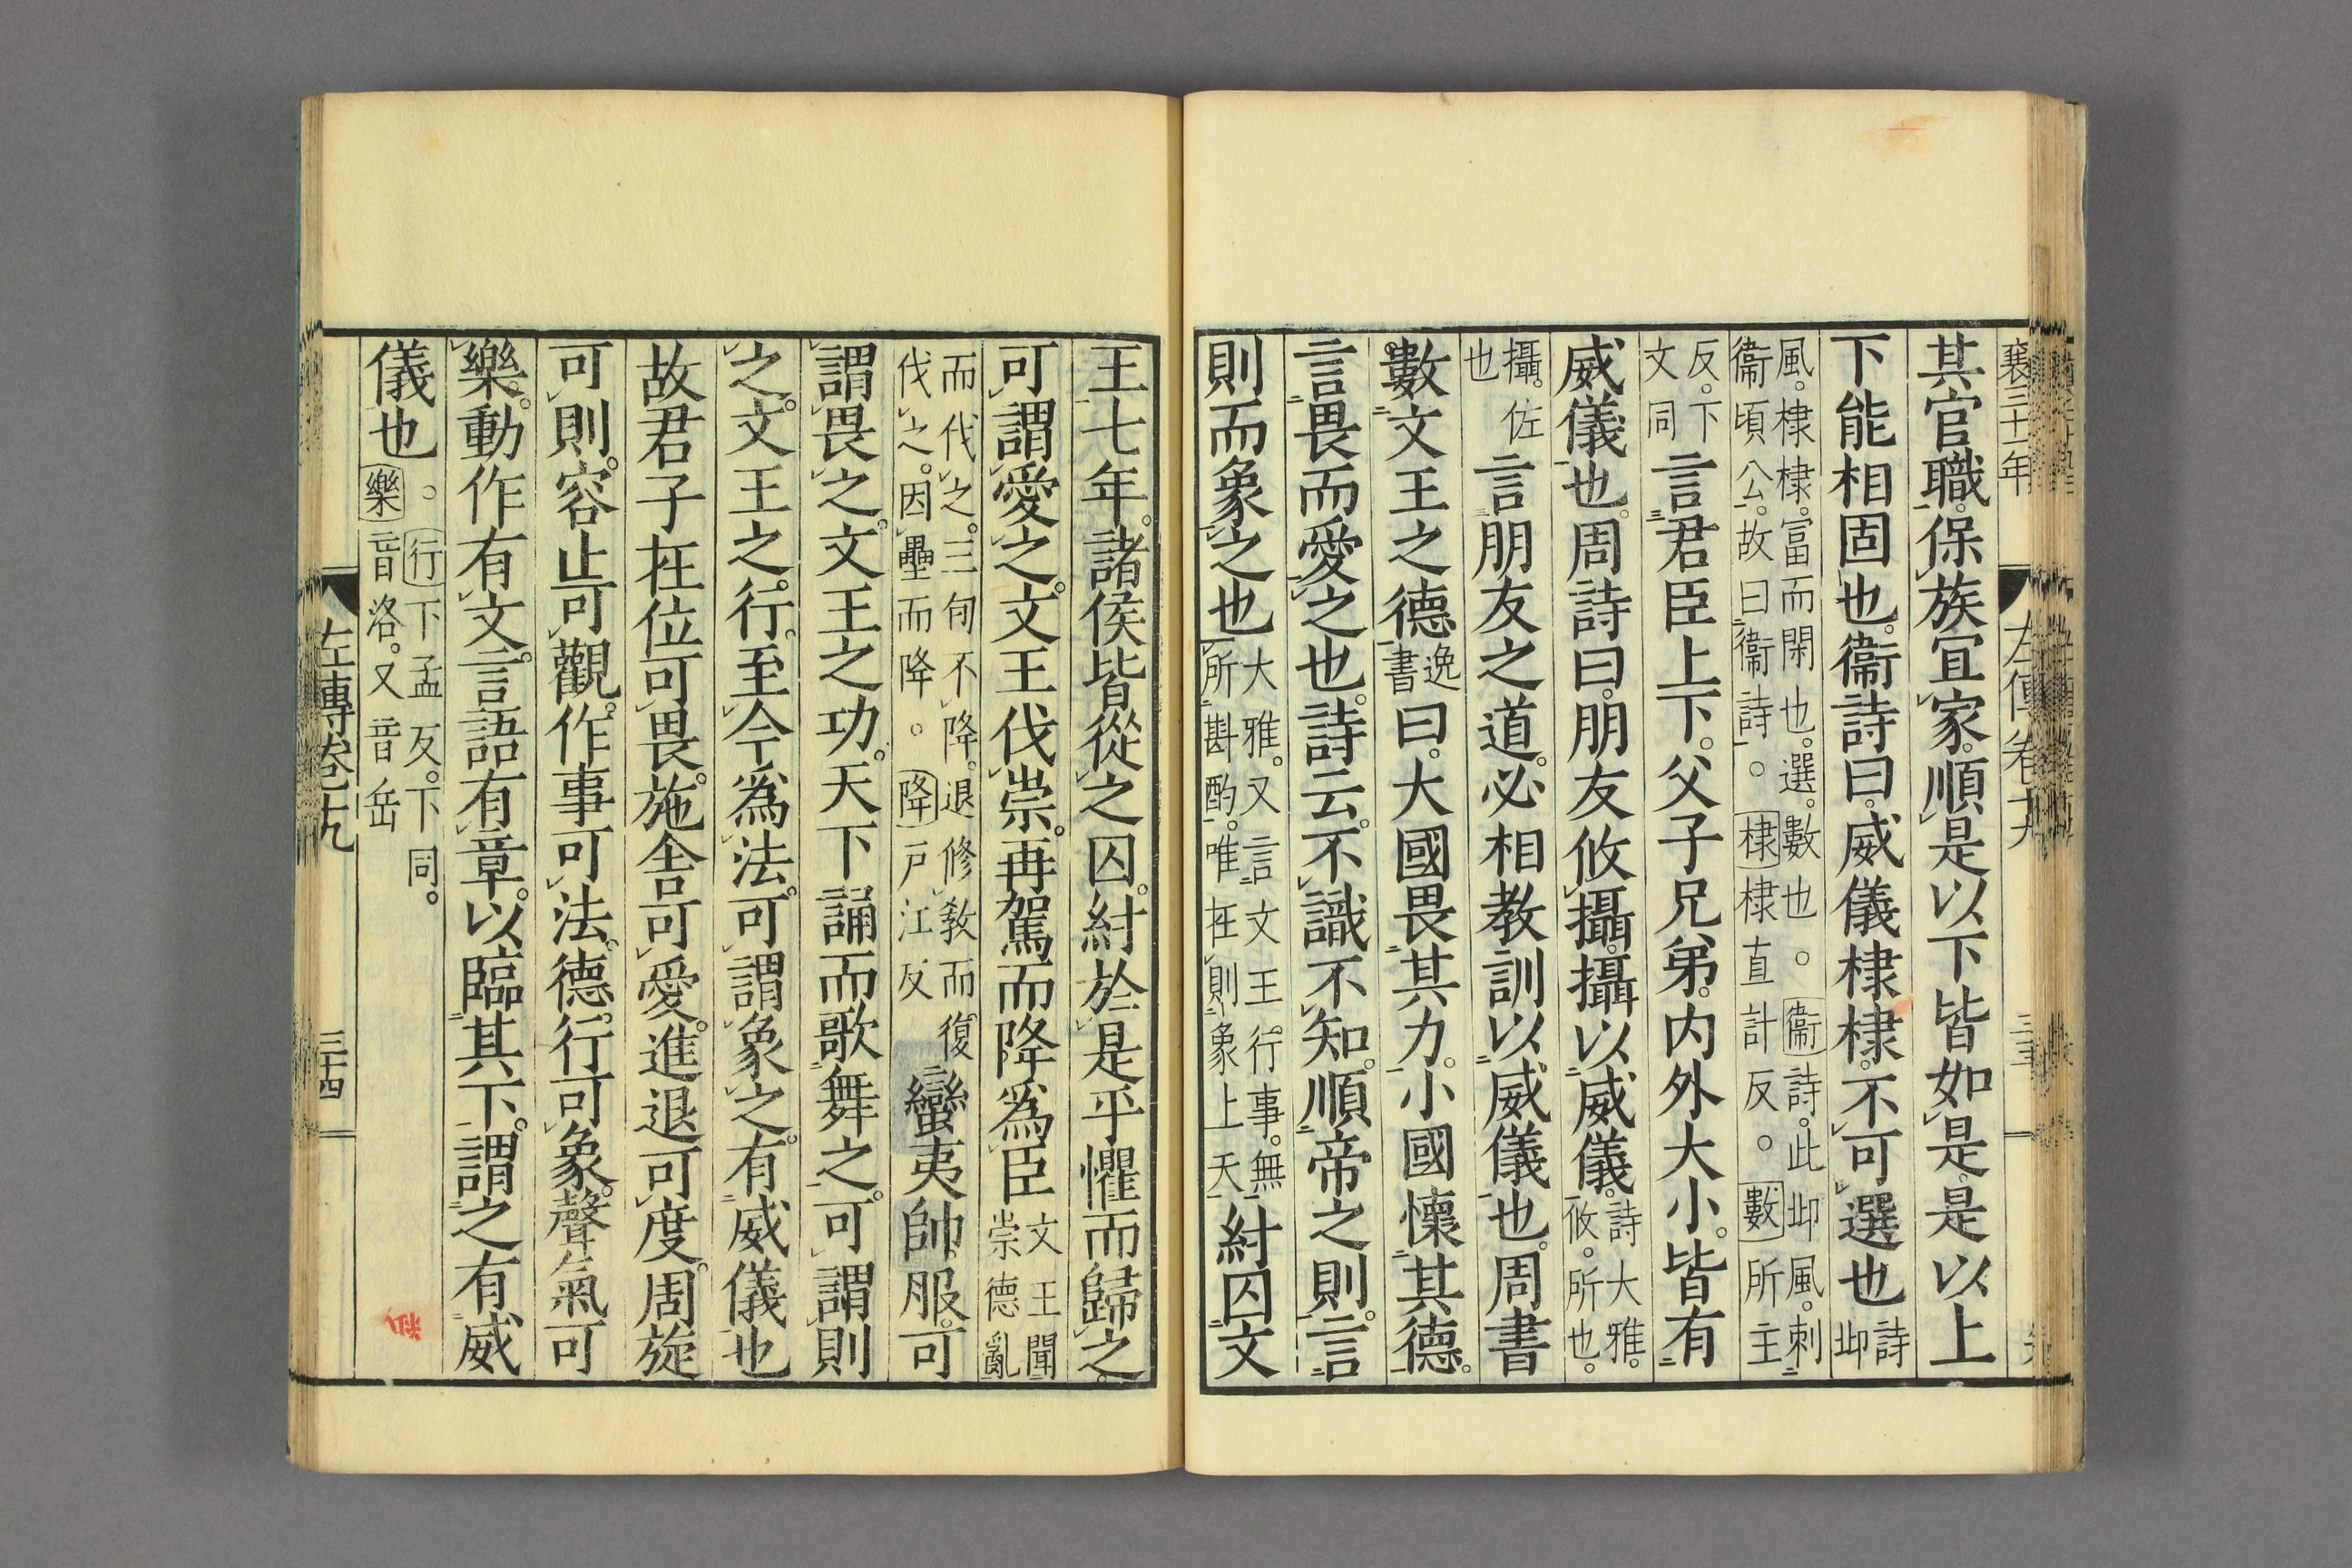 襄三十一年
左傳卷十九
其官職。保族宜家。順是以下皆如是。是以上
下能相固也。衞詩曰。威儀棣棣。不可選也詩邶
風。棣棣。富而閑也。選。數也。○衞詩。此邶風。刺
衞頃公。故曰衞詩。○棣棣直計反。○數所主
反。下
文同言君臣上下。父子兄弟。内外大小。皆有
威儀也。周詩曰。朋友攸攝。攝以威儀。詩大雅。
攸。所也。
攝。佐
也言朋友之道。必相教訓以威儀也。周書
數文王之德逸
書曰。大國畏其力。小國懷其德。
言畏而愛之也。詩云。不識不知。順帝之則。言
則而象之也大雅。又言文王行事。無
所斟酌。唯在則象上天紂囚文
王七年。諸侯皆從之囚。紂於是乎懼而歸之。
可謂愛之。文王伐崇。再駕而降爲臣文王聞
崇德亂
而伐之。三旬不降。退修敎而復
伐之。因壘而降。○降戸江反蠻夷帥服。可
謂畏之。文王之功。天下誦而歌舞之。可謂則
之。文王之行。至今爲法。可謂象之。有威儀也
故君子在位可畏。施舎可愛。進退可度。周旋
可則。容止可觀。作事可法。德行可象。聲氣可
樂。動作有文。言語有章。以臨其下。謂之有威
儀也。○行下孟反。下同。
樂音洛。又音岳
左傳卷十九
三十四